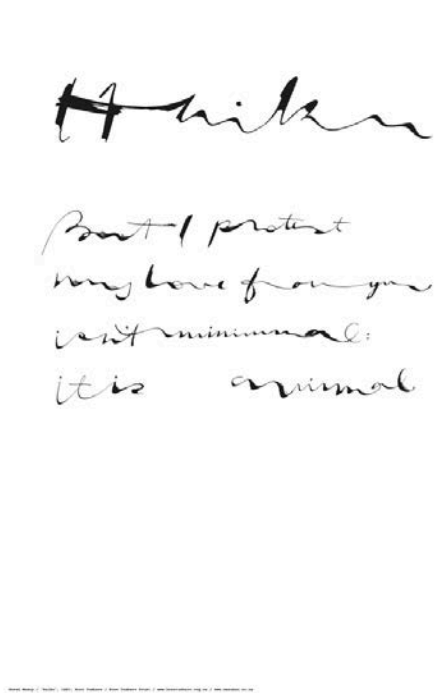 Haiku
But I protest
my love for you
isn't minimal:
it is animal